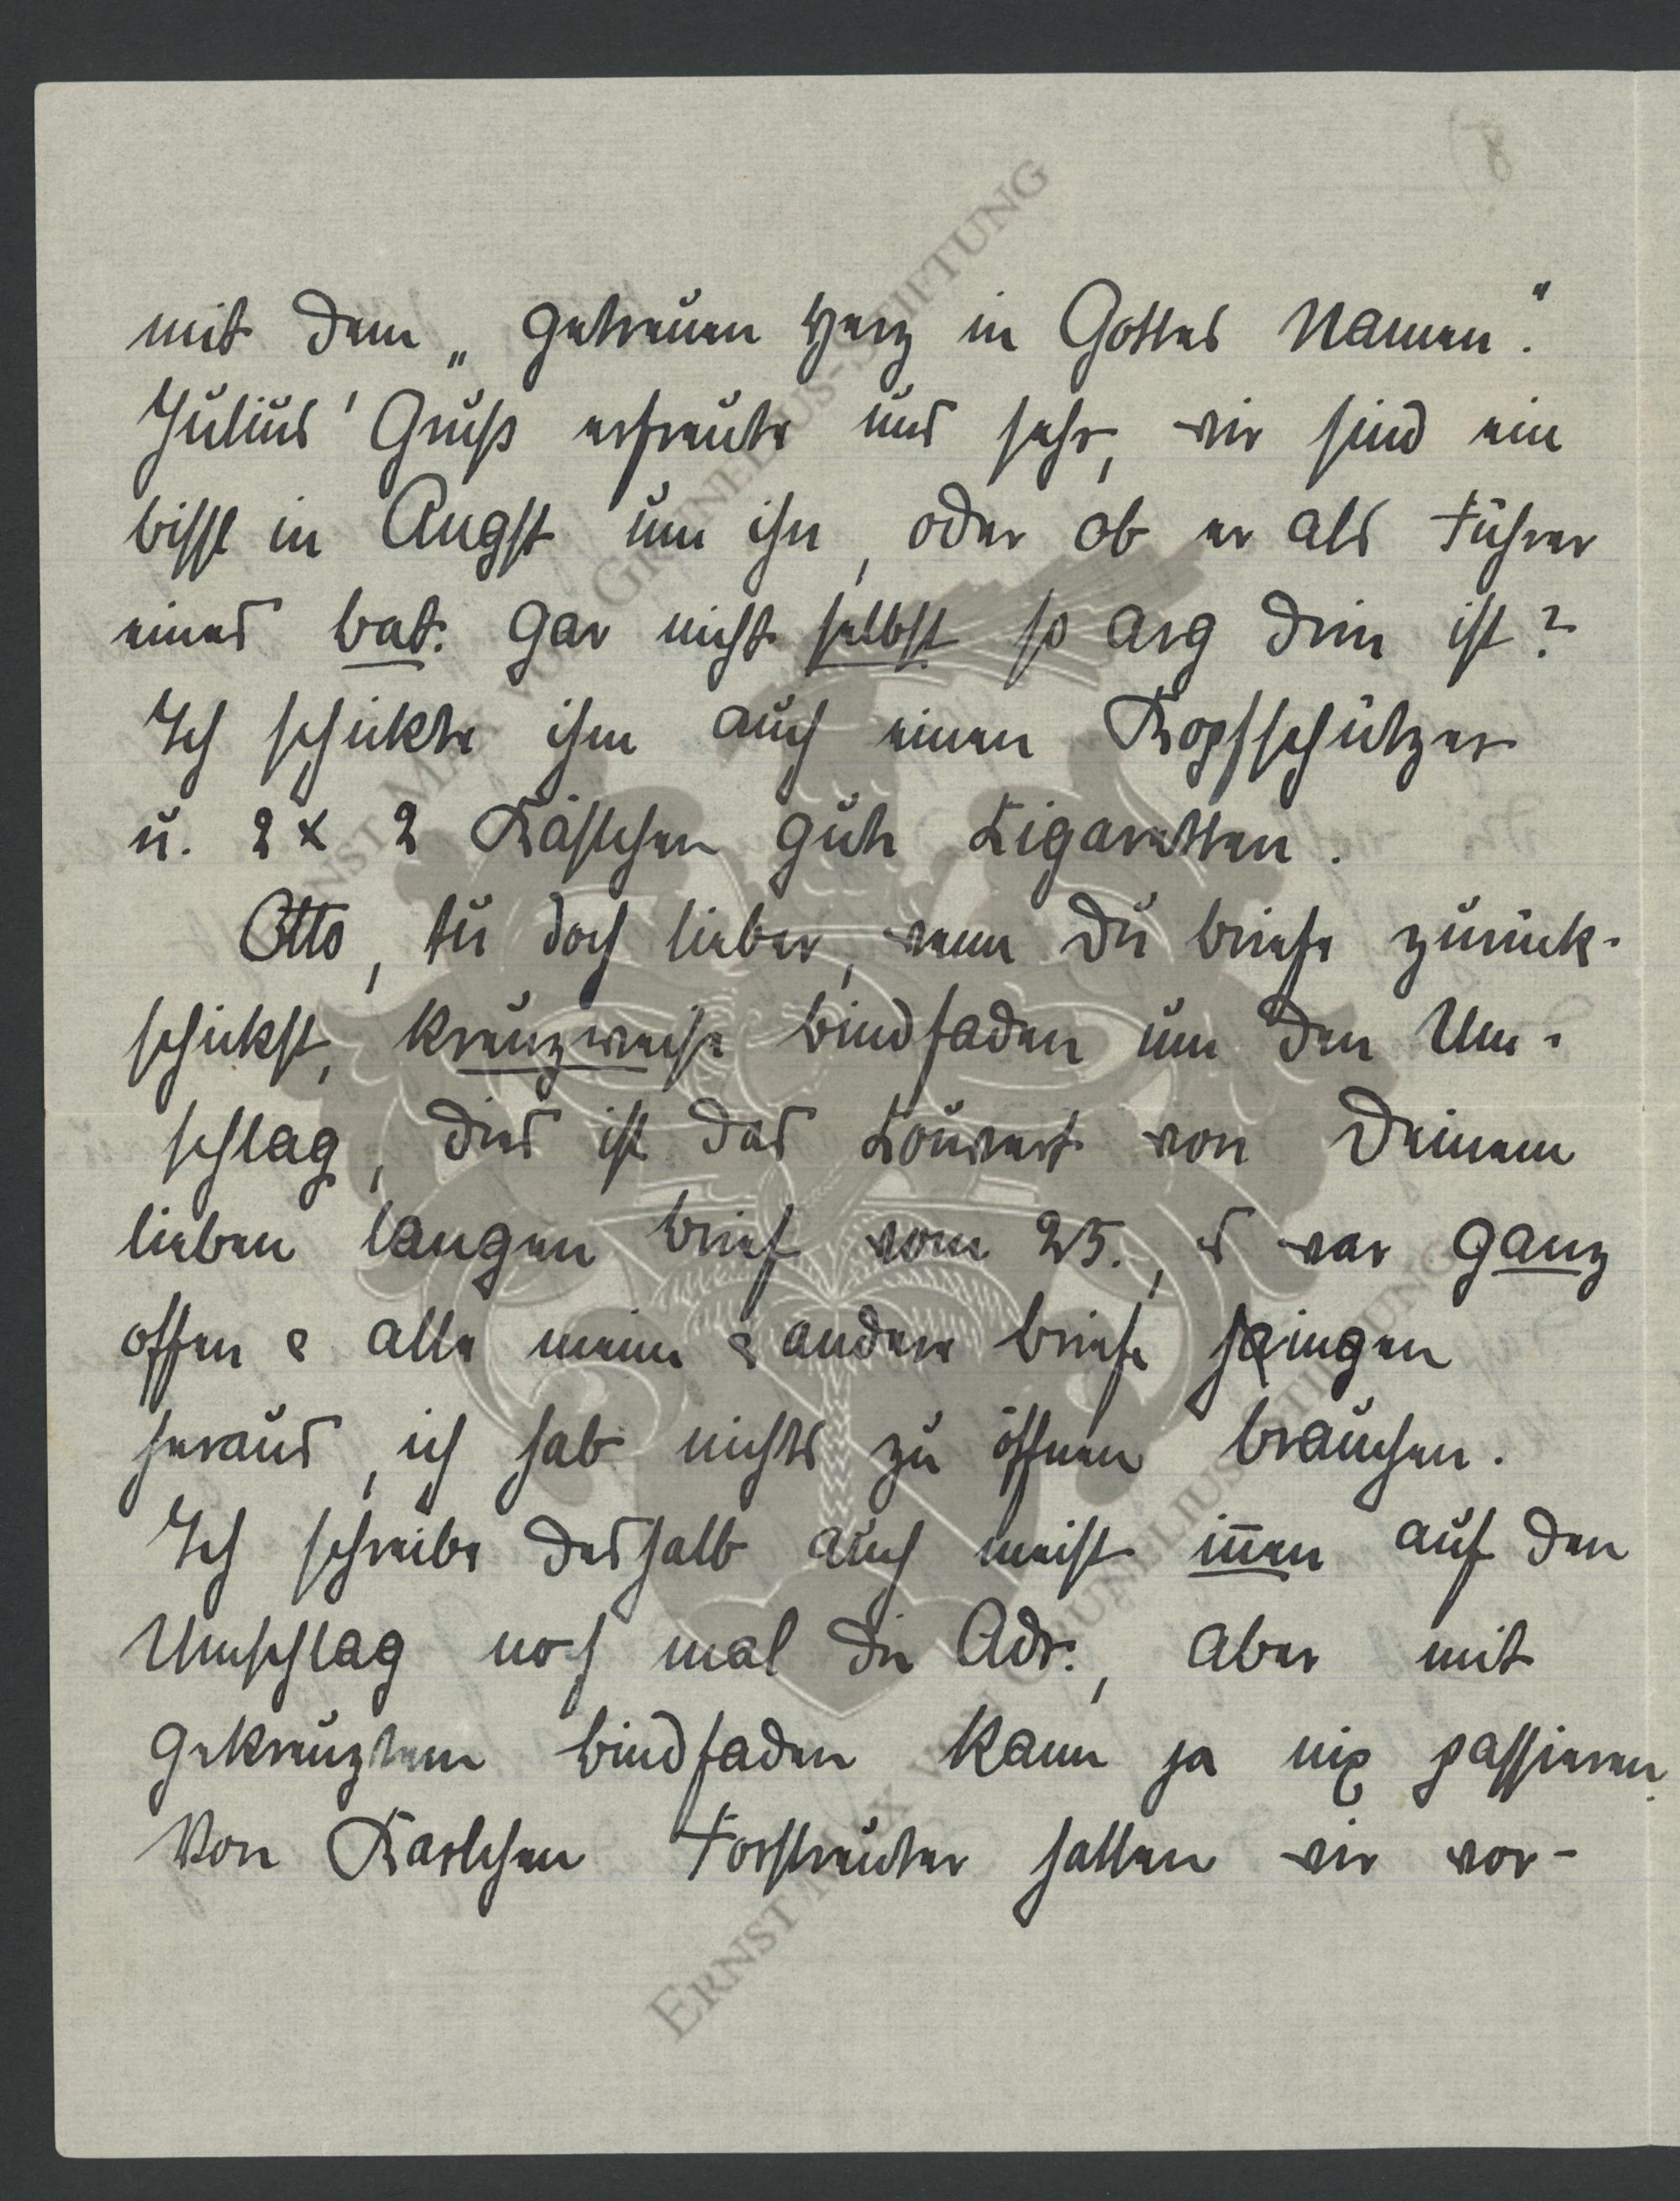 8
mit dem „getreuen Herz in Gottes Namen".
Julius' Gruß erfreute uns sehr, wir sind ein
bissl in Angst um ihn, oder ob er als Führer
eines Bat. gar nicht selbst so arg drin ist?
Ich schickte ihm auch einen Kopfschützer
u. 2 x 2 Kästchen gute Zigaretten.
Otto, tu doch lieber, wenn Du Briefe zurück-
schickst, kreuzweise Bindfaden um den Um-
schlag, dies ist das Couvert von Deinem
lieben langen Brief vom 25., es war ganz
offen & alle meine & andere Briefe hingen
heraus, ich hab nichts zu öffnen brauchen.
Ich schreibe deshalb auch meist innen auf den
Umschlag noch mal die Adr., aber mit
gekreuztem Bindfaden kann ja nix passieren.
Von Karlchen Forstreuter hatten wir vor-
ERNST MAX VON GRUNELIUS-STIFTUNG
ERNST MAX VON GRUNELIUS-STIFTUNG